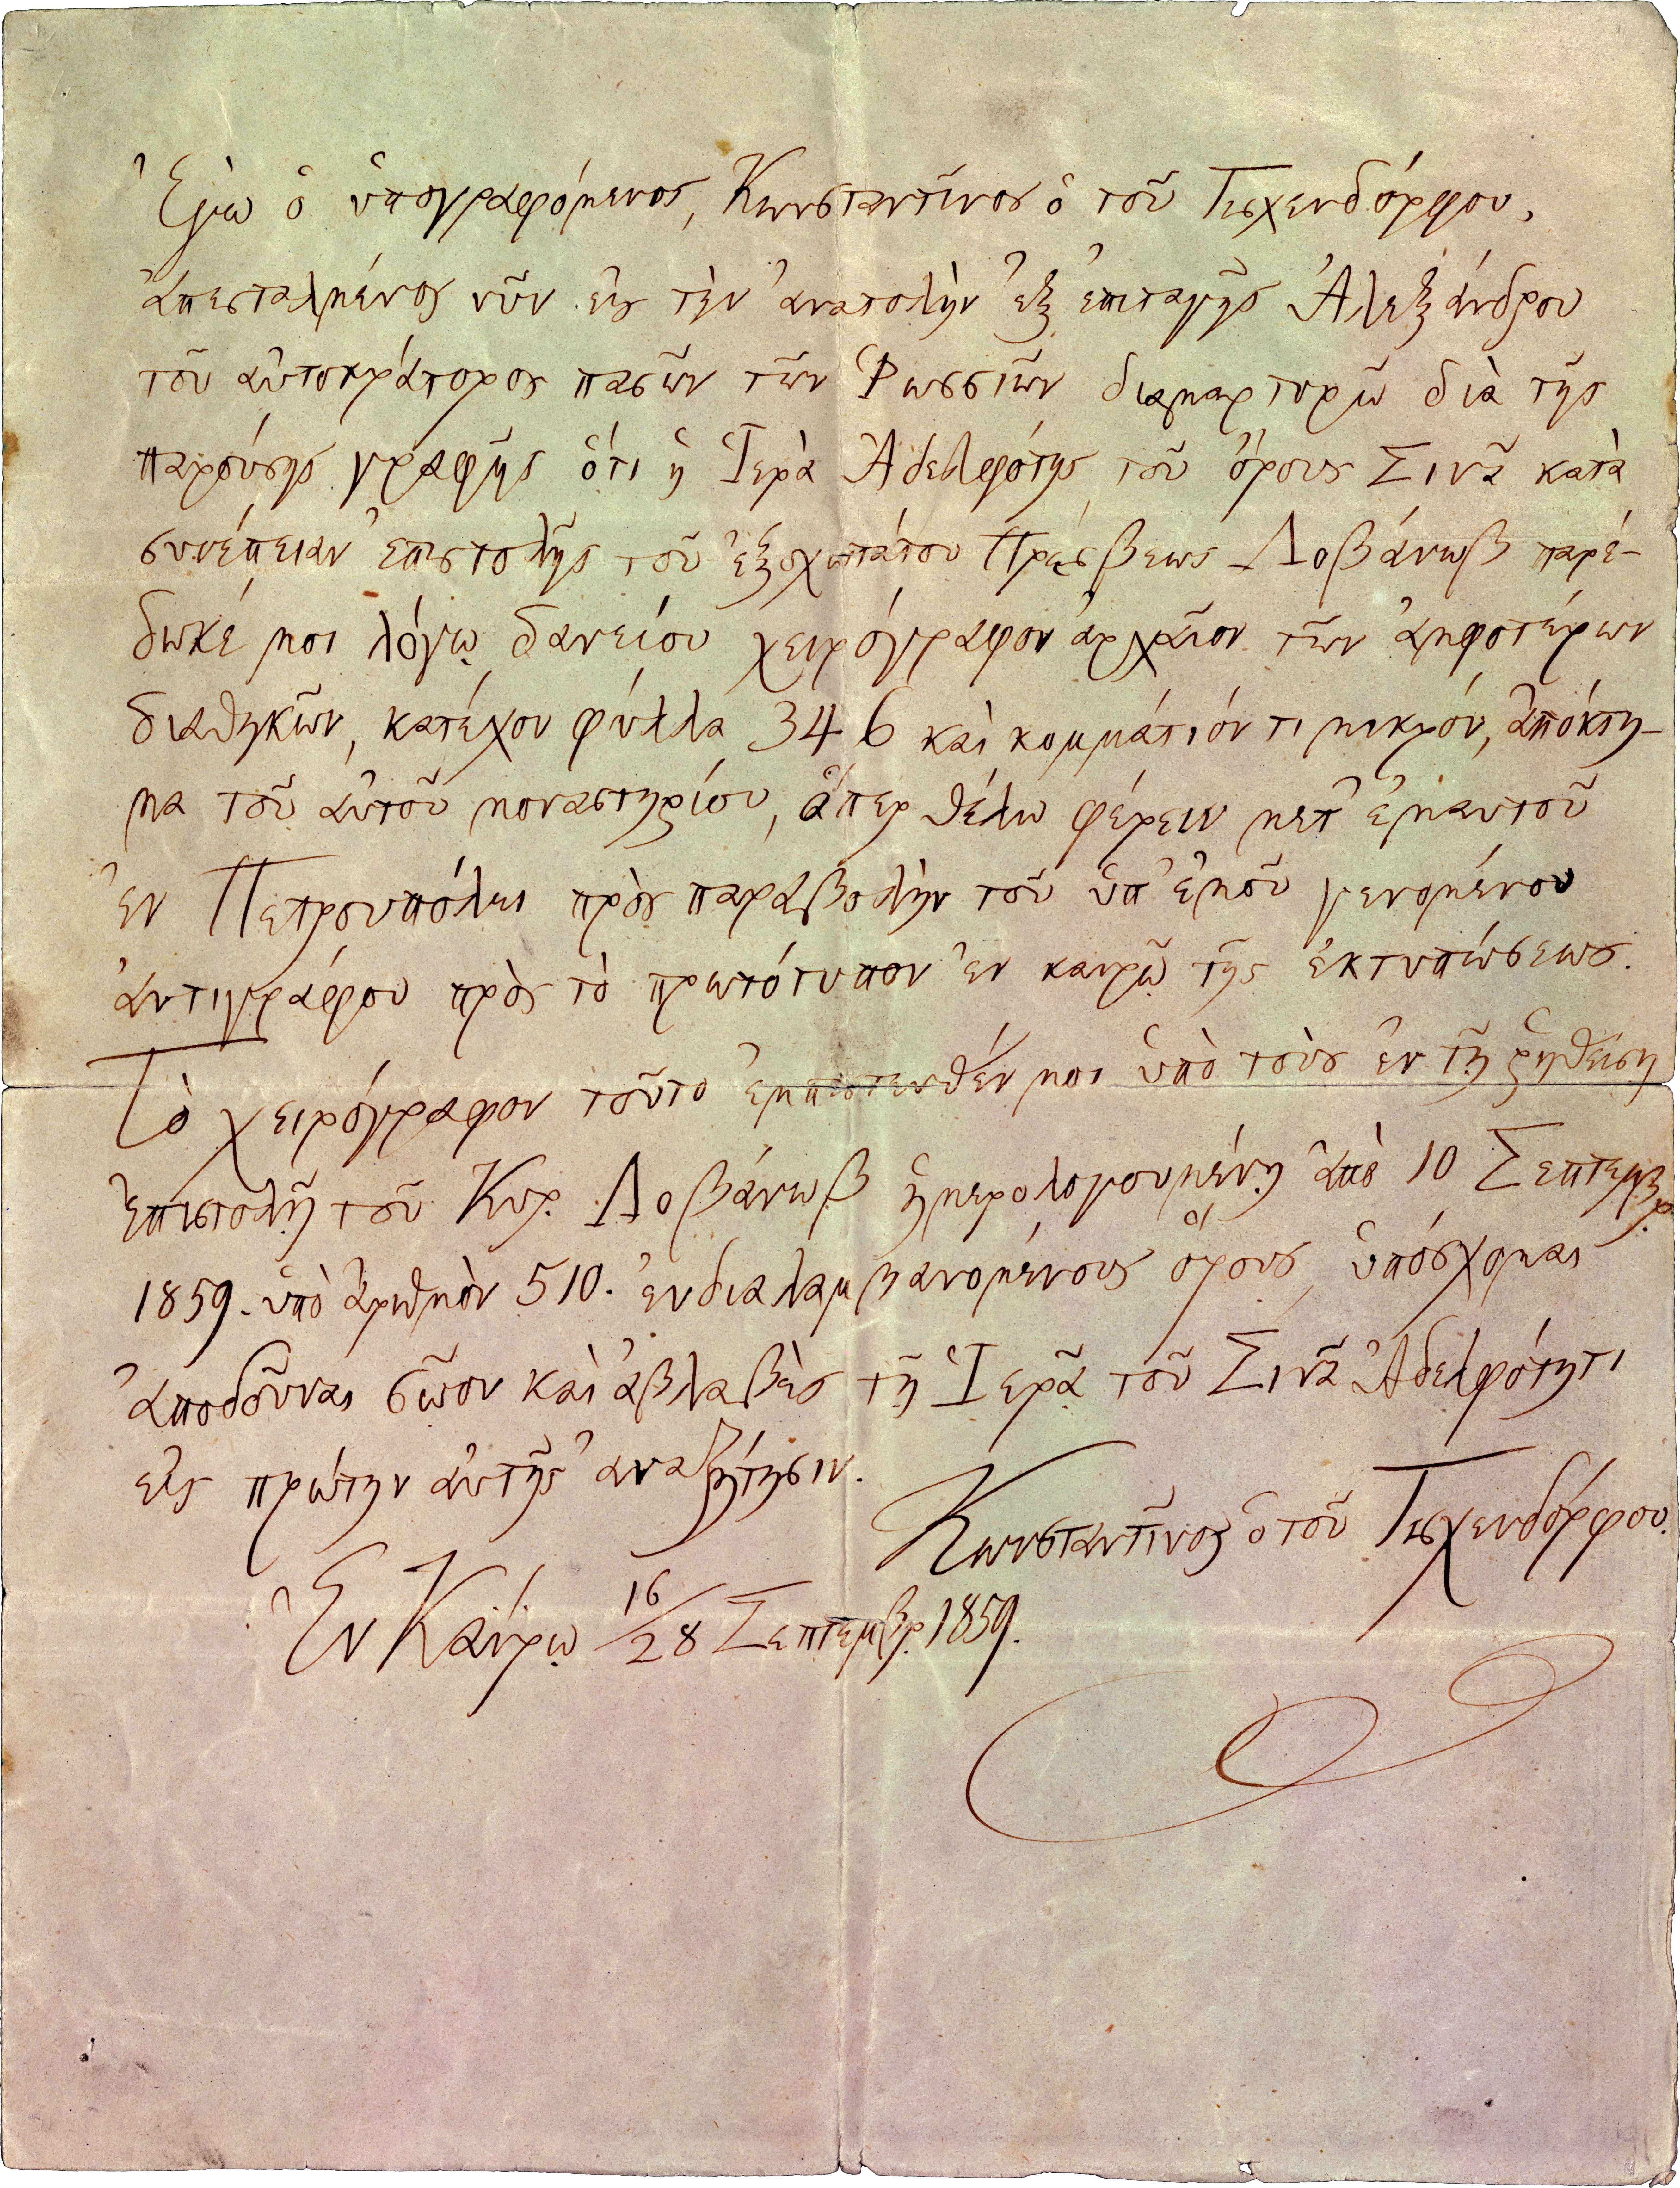 Ἐγὼ ὁ ὑπογραφόμενος, Κωνσταντῖνος ὁ τοῦ Τισχενδόρφου,
ἀπεσταλμένος νῦν εἰς τὴν ἀνατολὴν ἐξ ἐπιταγῆς Ἀλεξάνδρου
τοῦ αὐτοκράτορος πασῶν τῶν Ῥωσσιῶν διαμαρτυρῶ διὰ τῆς
παρούσης γραφῆς ὅτι ἡ Ἱερὰ Ἀδελφότης τοῦ ὄρους Σινᾶ κατὰ
συνέπειαν ἐπιστολῆς τοῦ ἐξοχωτάτου Πρέσβεως Λοβάνωβ παρέ-
δωκέ μοι λόγῳ δανείου χειρόγραφον ἀρχαῖον τῶν ἀμφοτέρων
διαθηκῶν, κατέχον φύλλα 346 καὶ κομμάτιόν τι μικρόν, ἀπόκτη-
μα τοῦ αὐτοῦ μοναστηρίου, ἅπερ θέλω φέρειν μετ' ἐμαυτοῦ
ἐν Πετρουπόλει πρὸς παραβολὴν τοῦ ὑπ' ἐμοῦ γενομένου
ἀντιγράφου πρὸς τὸ πρωτότυπον ἐν καιρῷ τῆς ἐκτυπώσεως.
Τὸ χειρόγραφον τοῦτο ἐμπιστευθέν μοι ὑπὸ τοὺς ἐν τῇ ῥηθείσῃ
ἐπιστολῇ τοῦ Κυρ. Λοβάνωβ ἡμερολογουμένῃ ἀπὸ 10 Σεπτεμβρ.
1859. ὑπὸ ἀριθμὸν 510. ἐνδιαλαμβανομένους ὅρους, ὑπόσχομαι
ἀποδοῦναι σῶον καὶ ἀβλαβὲς τῇ Ἱερᾷ τοῦ Σινᾶ Ἀδελφότητι
εἰς πρώτην αὐτῆς ἀναζήτησιν.
Κωνσταντῖνος ὁ τοῦ Τισχενδόρφου.
Ἐν Καΐρῳ 16/28 Σεπτεμβρ. 1859.